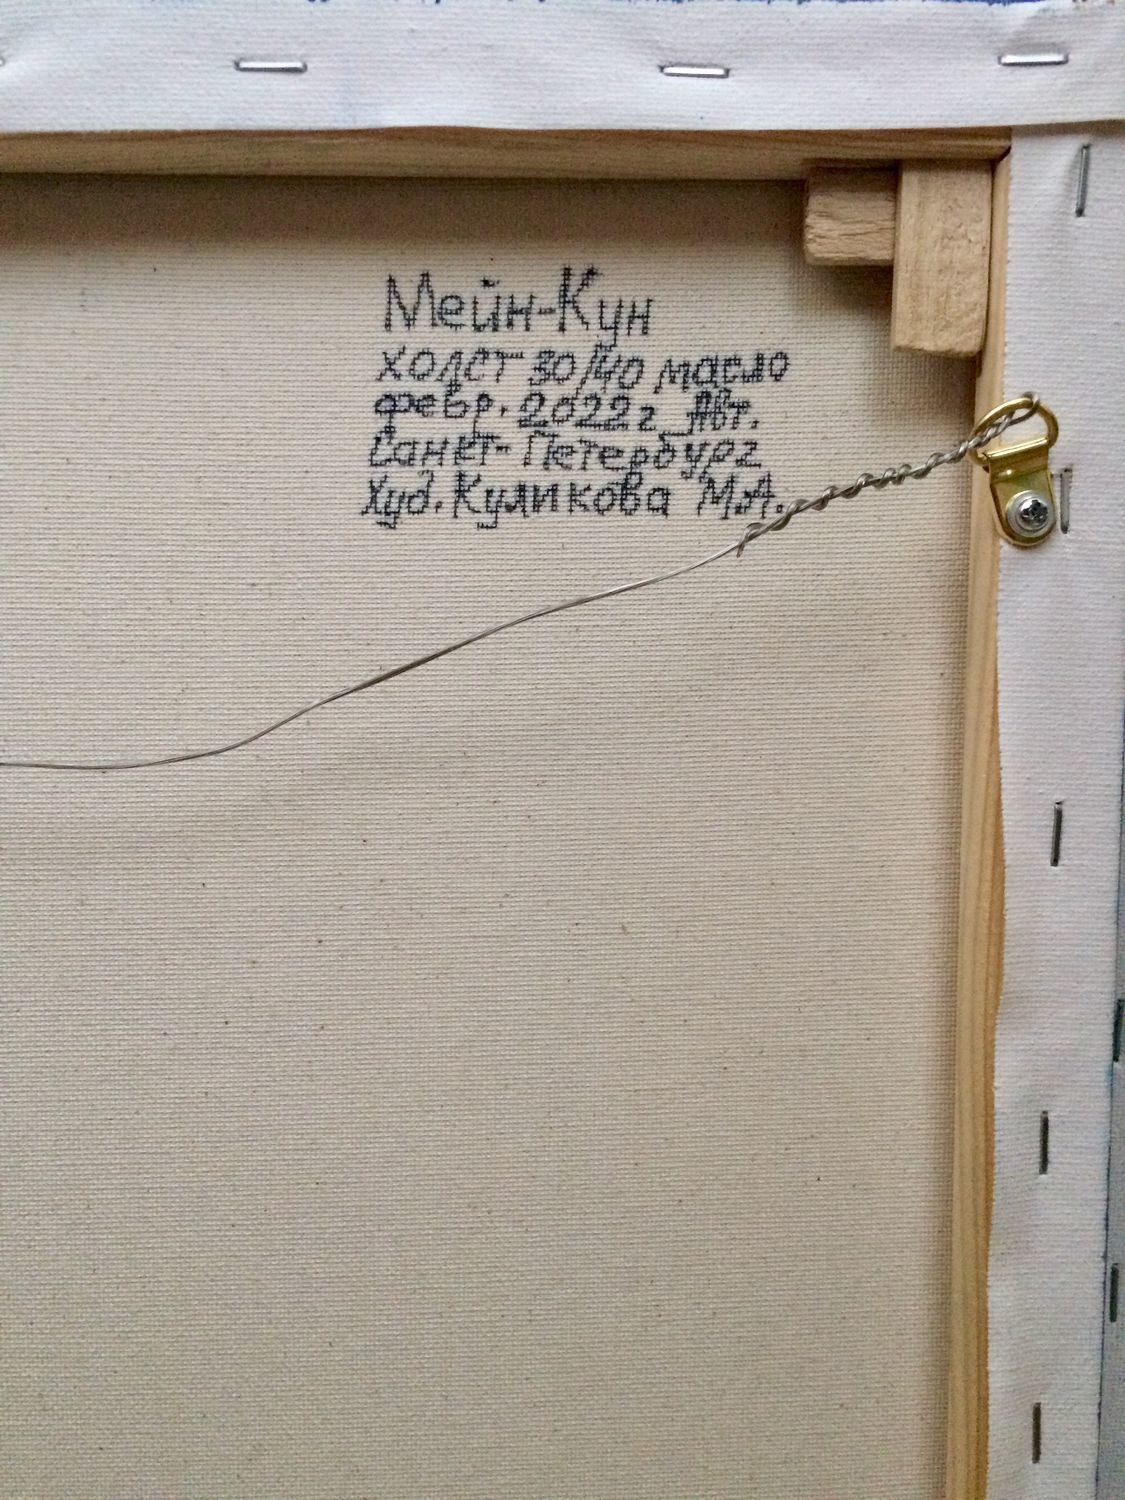 Мейн-Кун
холст 30/40 масло
февр. 2022г_Авт.
Санкт-Петербург
Худ. Куликова М.А.